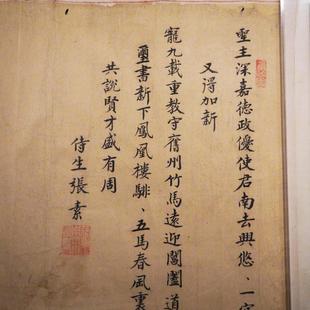 聖主深嘉德政優使君南去興悠、一字
又得加新
寵九載重教守舊州竹馬遠迎閶闔道
璽書新下鳳凰樓騑、五馬春風裏
共說賢才盛有周
侍生張素